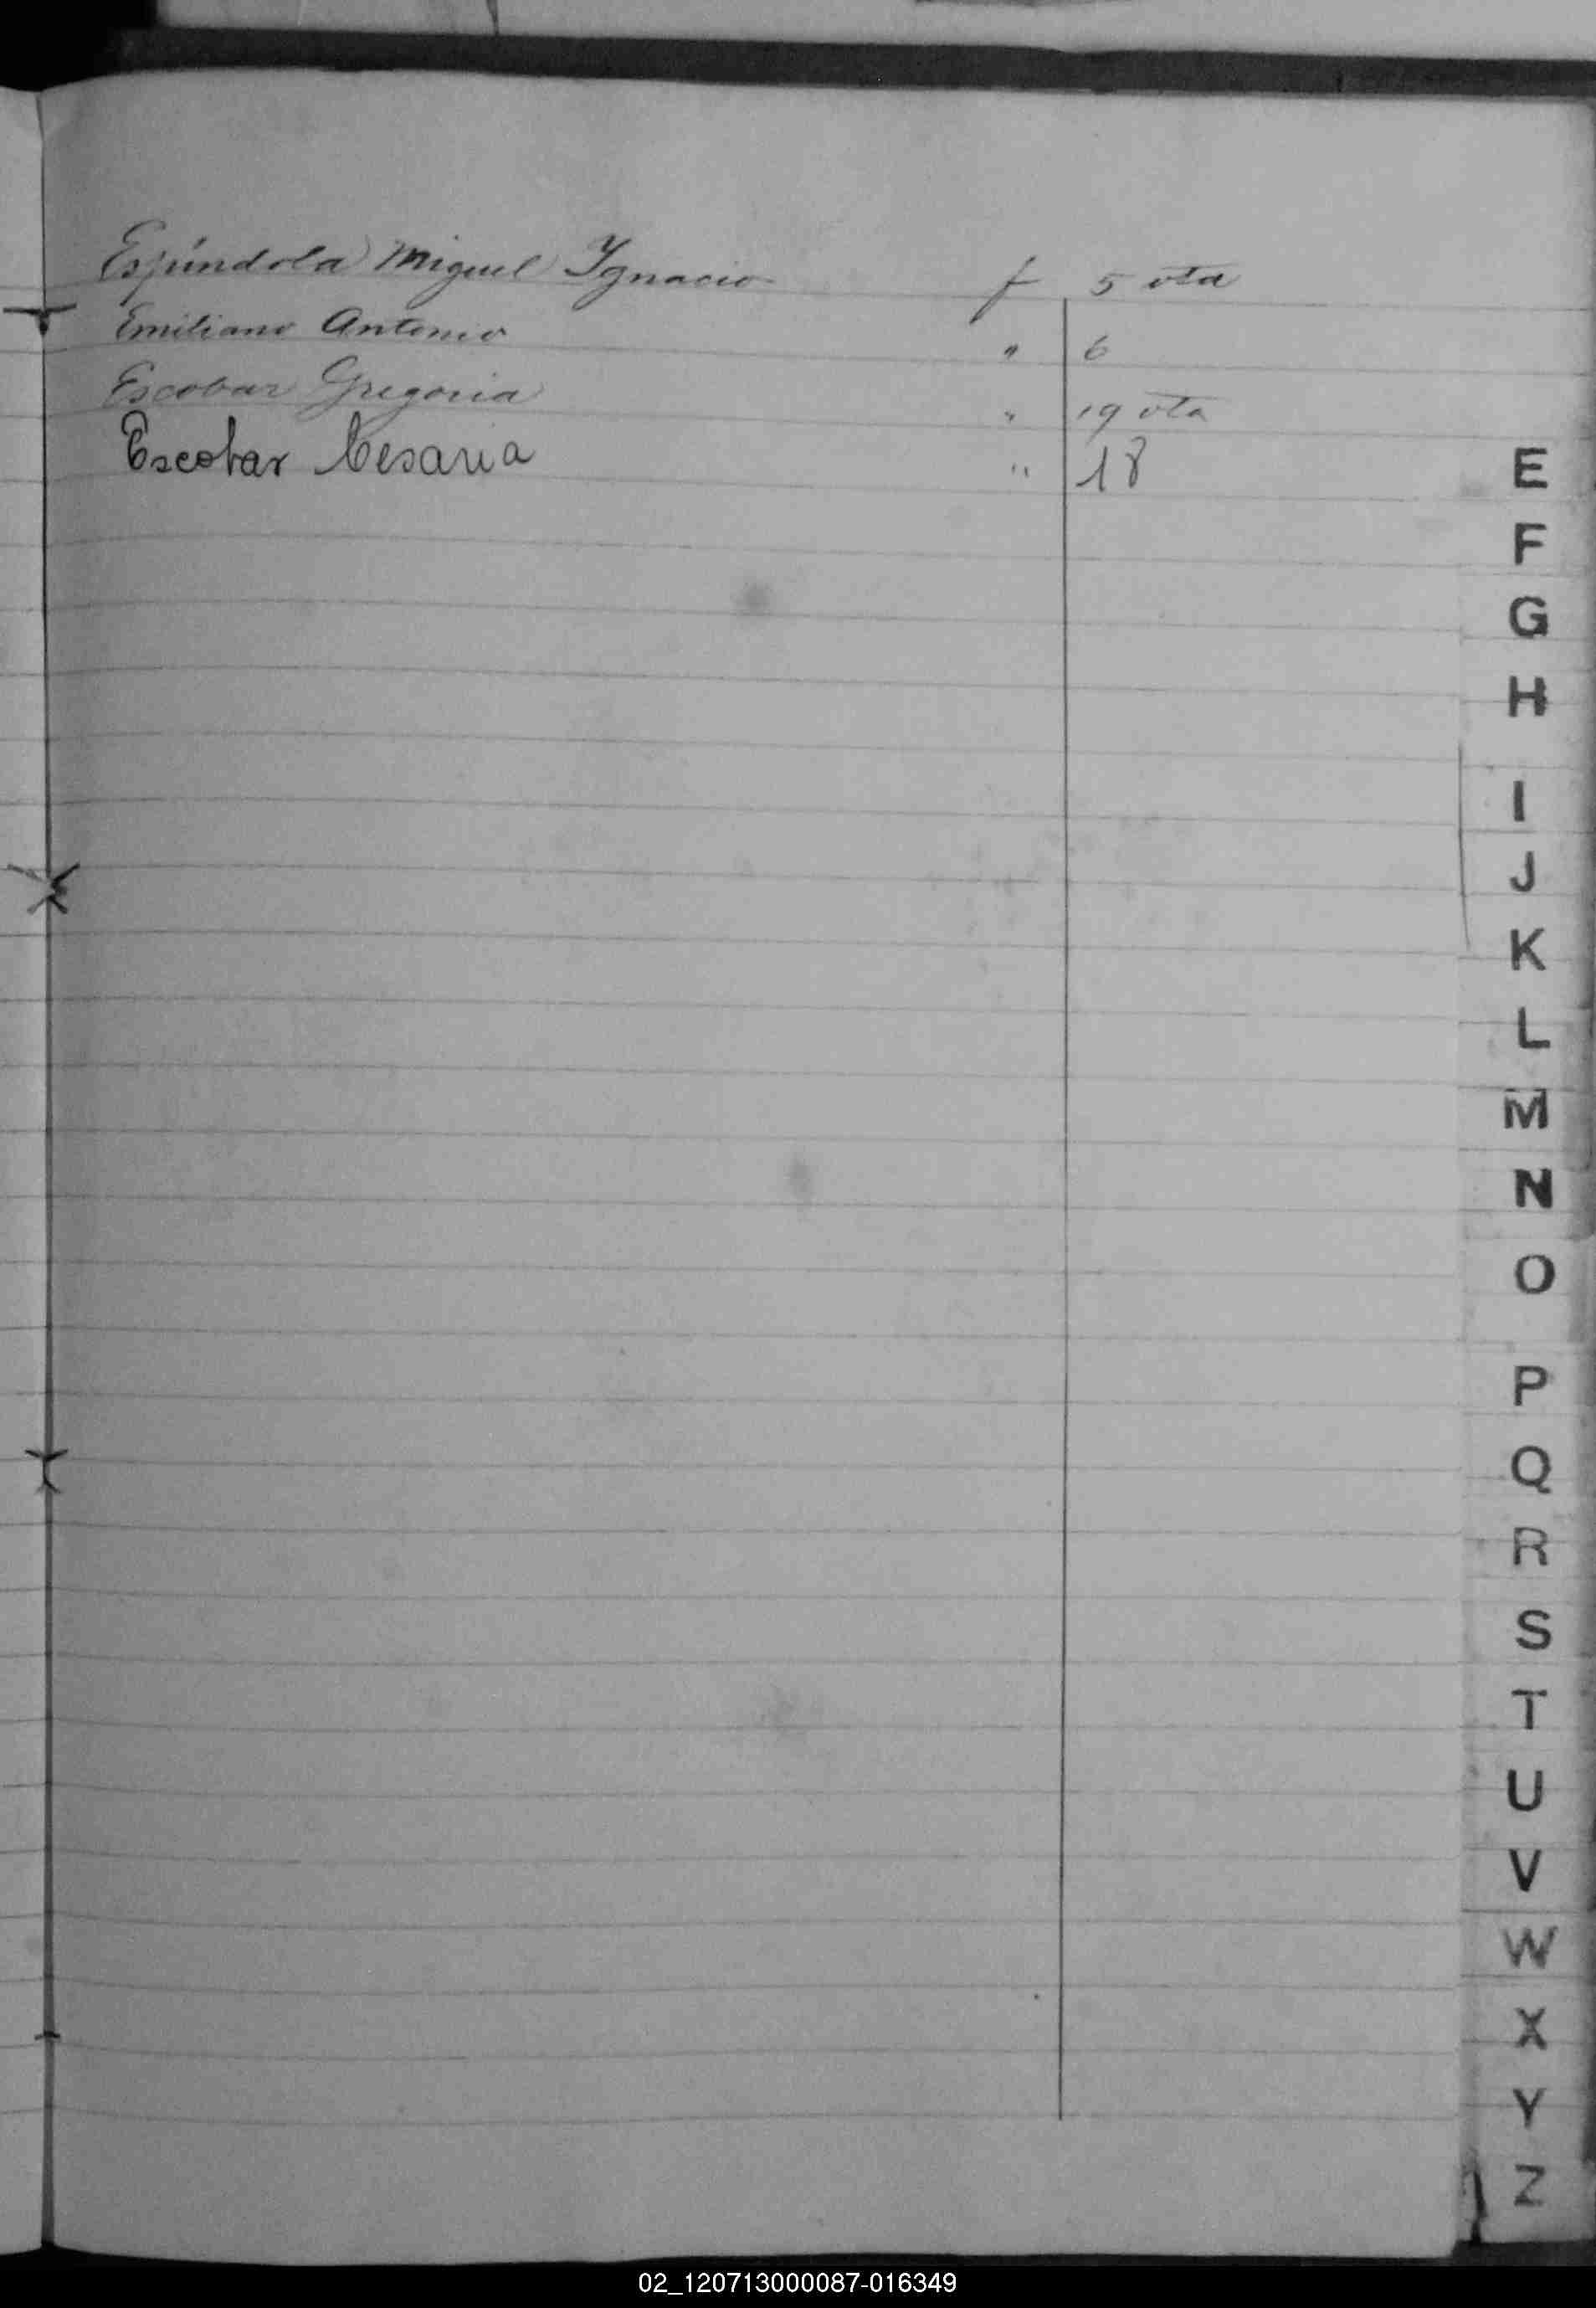 Espíndola Miguel Ygnacio f 5 vta
Emiliano Antonio " 6
Escobar Gregoria " 19 vta
Escobar Cesaria " 18
E
F
G
H
I
J
K
L
M
N
O
P
Q
R
S
T
U
V
W
X
Y
Z
02_120713000087-016349